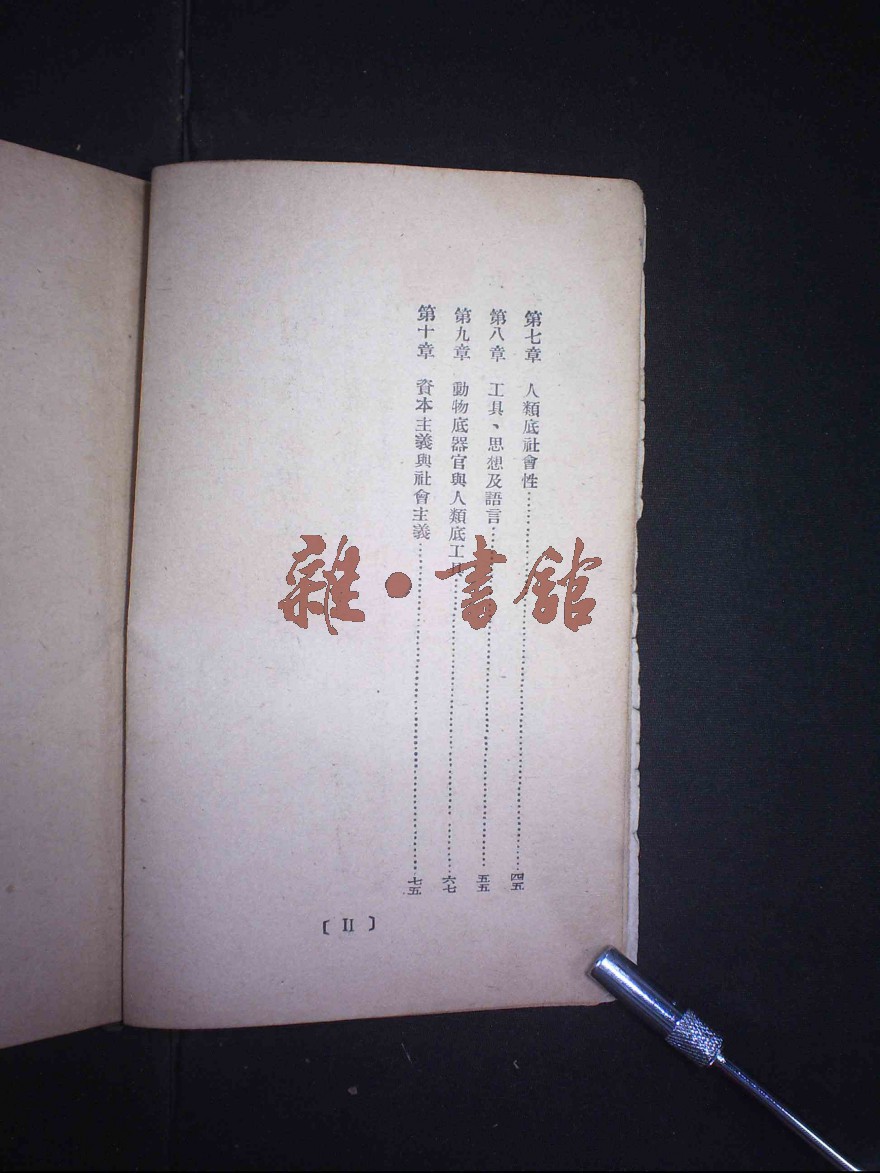 第七章 人類底社會性……四五
第八章 工具、思想及語言……五五
第九章 動物底器官與人類底工具……六七
第十章 資本主義與社會主義……七五
〔 II 〕
雜·書館